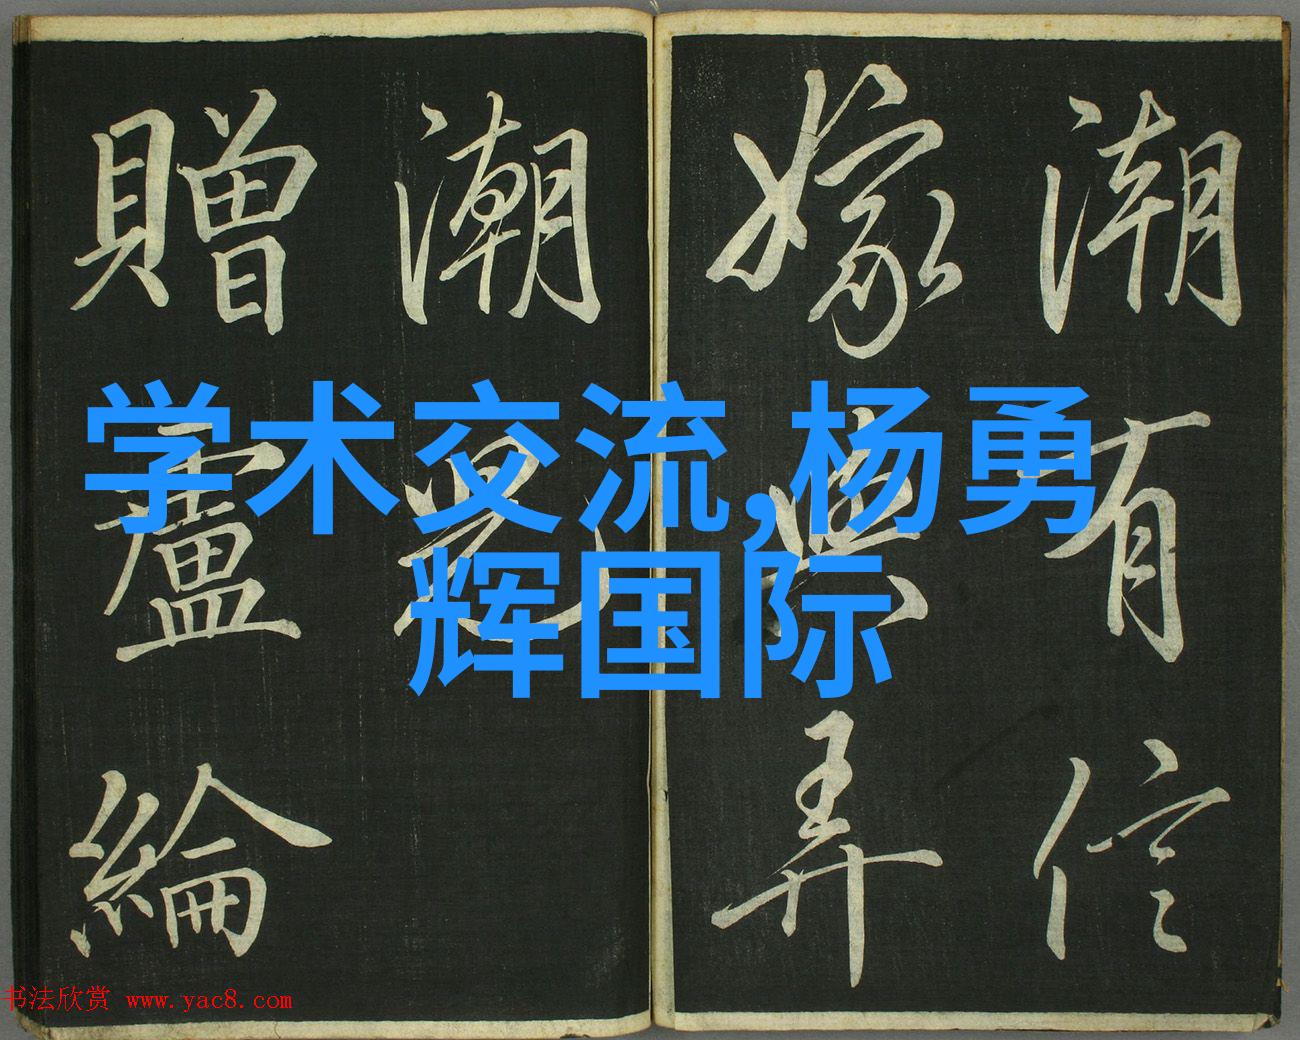 潮有信
嫁與弄
潮兒
贈盧綸
学术交流,杨勇
辉国际
书法欣赏 www.yac8.com